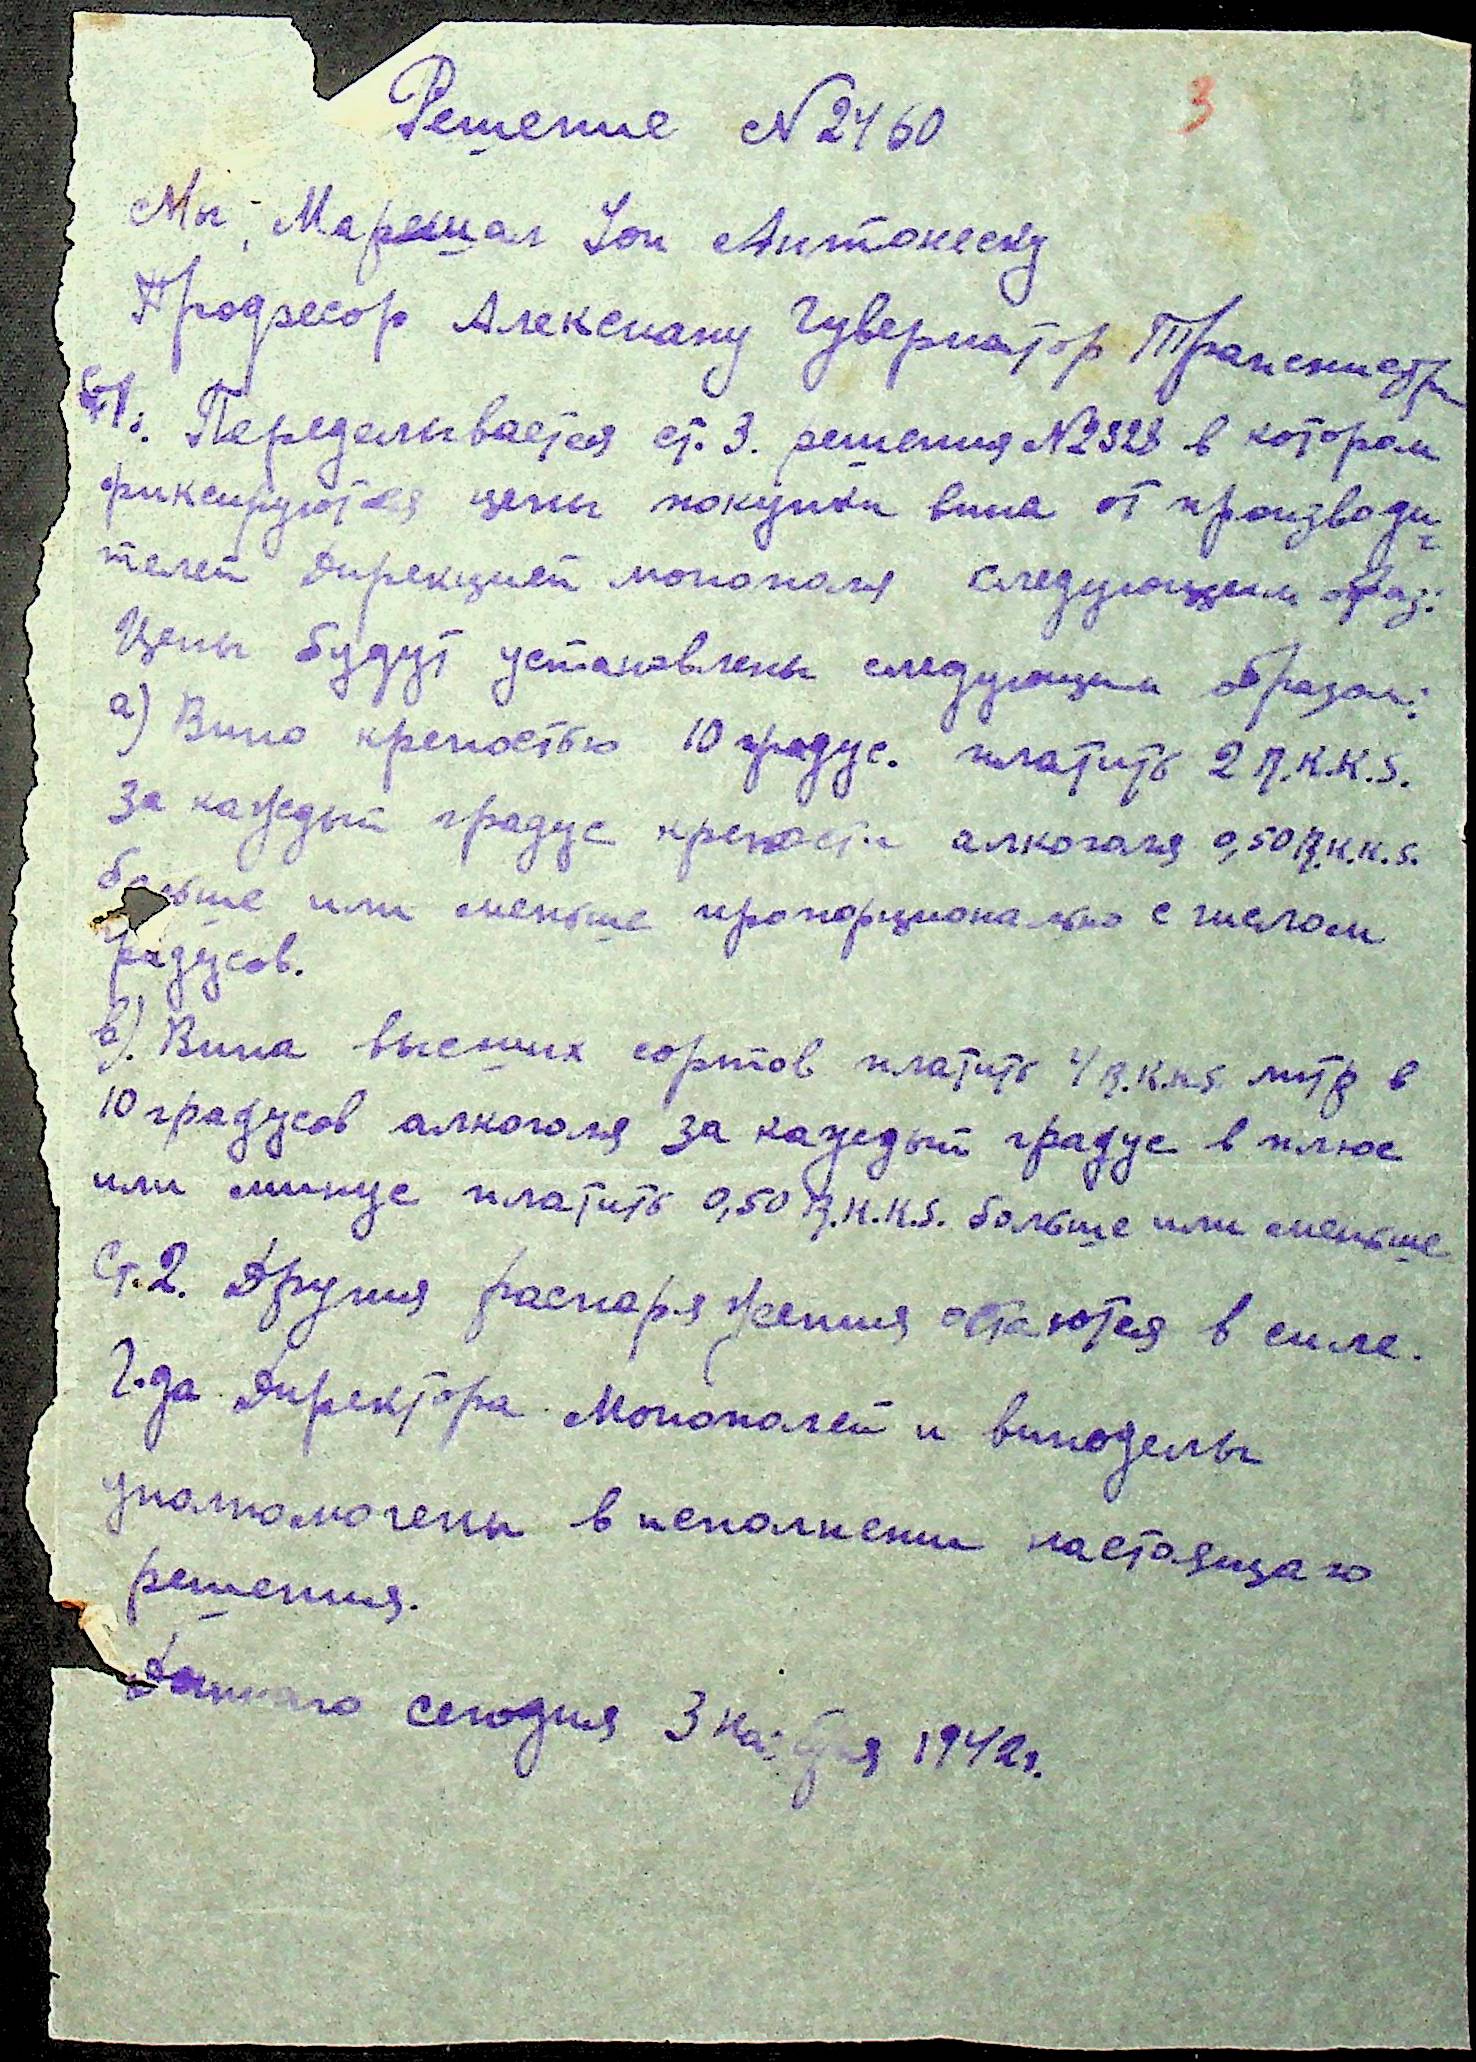 Решение № 2460
3
Мы, Марешал Іон Антонеску
Професор Алексиану Гувернатор Транснистри
Ст1. Переделывается ст. 3. решения № 2328 в котором
фиксируются цены покупки вина от производи-
телей Дирекцией монополя следующем образ:
Цены будут установлены следующим образом:
а) Вино крепостью 10 градус. платить 2 R.K.K.S.
За каждый градус крепости алкоголя 0,50 R.K.K.S.
больше или меньше пропорционально с числом
градусов.
в). Вина высших сортов платить 4 R.K.K.S. литр в
10 градусов алкоголя за каждый градус в плюс
или минус платить 0,50 R.K.K.S. больше или меньше
Ст. 2. Другия распоряжения остаются в силе.
Г-да Директора Монополей и виноделы
уполномочены в исполнении настоящаго
решения.
Даннаго сегодня 3 Ноября 1942г.